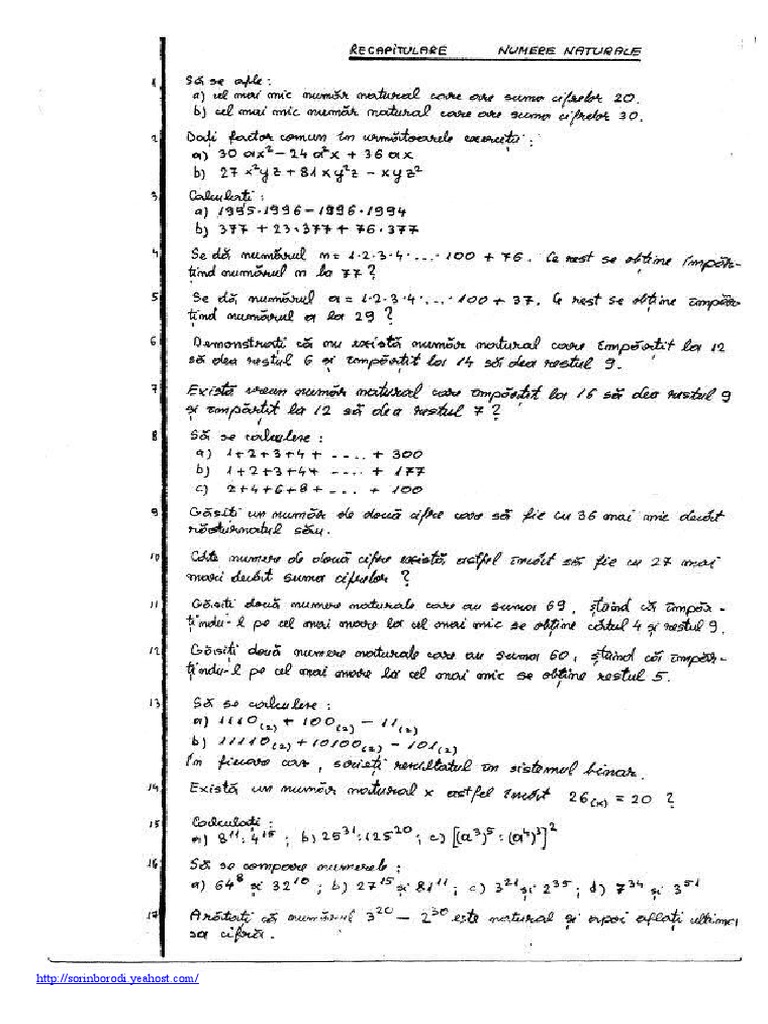 RECAPITULARE NUMERE NATURALE
1 Să se afle :
a) cel mai mic număr natural care are suma cifrelor 20.
b) cel mai mic număr natural care are suma cifrelor 30.
2 Dați factor comun în următoarele exerciții :
a) 30 ax² − 24 a²x + 36 ax
b) 27 x²yz + 81 xy²z − xyz²
3 Calculați :
a) 1995·1996 − 1996·1994
b) 377 + 23·377 + 76·377
4 Se dă numărul n = 1·2·3·4· ... ·100 + 76. Ce rest se obține împăr-
țind numărul n la 77 ?
5 Se dă numărul a = 1·2·3·4· ... ·100 + 37. Ce rest se obține împăr-
țind numărul a la 29 ?
6 Demonstrați că nu există număr natural care împărțit la 12
să dea restul 6 și împărțit la 14 să dea restul 9.
7 Există vreun număr natural care împărțit la 15 să dea restul 9
și împărțit la 12 să dea restul 7 ?
8 Să se calculeze :
a) 1+2+3+4+ .... + 300
b) 1+2+3+4+ .... + 177
c) 2+4+6+8+ .... + 100
9 Găsiți un număr de două cifre care să fie cu 36 mai mic decât
răsturnatul său.
10 Câte numere de două cifre există, astfel încât să fie cu 27 mai
mari decât suma cifrelor ?
11 Găsiți două numere naturale care au suma 69, știind că împăr-
țindu-l pe cel mai mare la cel mai mic se obține câtul 4 și restul 9.
12 Găsiți două numere naturale care au suma 60, știind că împăr-
țindu-l pe cel mai mare la cel mai mic se obține restul 5.
13 Să se calculeze :
a) 1110₍₂₎ + 100₍₂₎ − 11₍₂₎
b) 11110₍₂₎ + 10100₍₂₎ − 101₍₂₎
În fiecare caz, scrieți rezultatul în sistemul binar.
14 Există un număr natural x astfel încât 26₍ₓ₎ = 20 ?
15 Calculați :
a) 8¹¹ : 4¹⁵ ; b) 25³¹ : 125²⁰ ; c) [(a³)⁵ : (a⁴)³]²
16 Să se compare numerele :
a) 64⁸ și 32¹⁰ ; b) 27¹⁵ și 81¹¹ ; c) 3²¹ și 2³⁵ ; d) 7³⁴ și 3⁵¹
17 Arătați că numărul 3²⁰ − 2³⁰ este natural și apoi aflați ultima
sa cifră.
http://sorinborodi.yeahost.com/